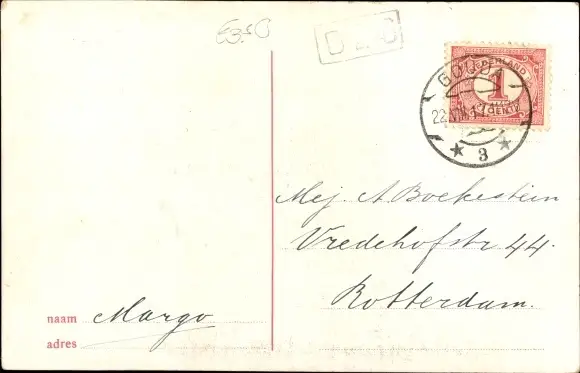 €3.50
GOUDA
NEDERLAND
1
CENT
3
Mej. A. Boekestein
Vredehofstr 44.
Rotterdam.
naam Margo
adres